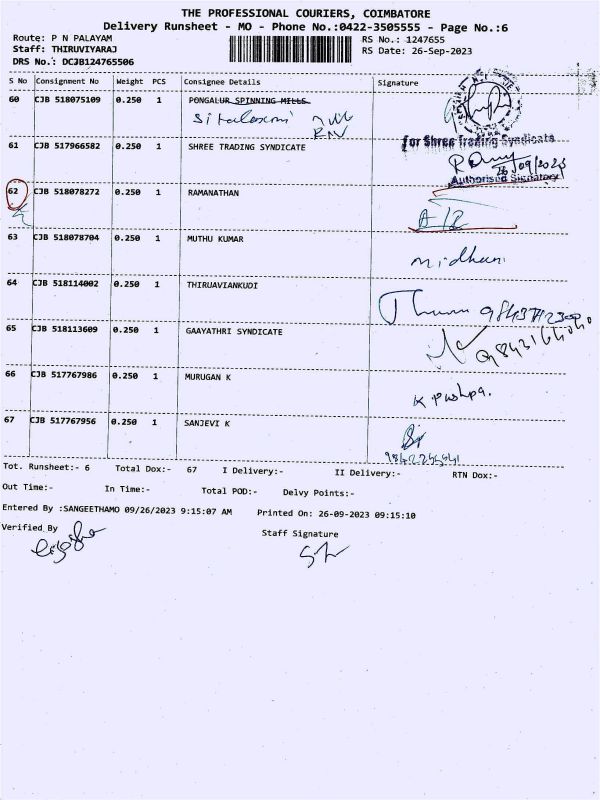 THE PROFESSIONAL COURIERS, COIMBATORE
Delivery Runsheet - MO - Phone No.:0422-3505555 - Page No.:6
Route: P N PALAYAM RS No.: 1247655
Staff: THIRUVIYARAJ RS Date: 26-Sep-2023
DRS No.: DCJB124765506
S No Consignment No Weight PCS Consignee Details Signature
60 CJB 518075109 0.250 1 PONGALUR SPINNING MILLS
61 CJB 517966582 0.250 1 SHREE TRADING SYNDICATE
for Shree Trading Syndicate
26/09/2023
Authorised Signatory
62 CJB 518078272 0.250 1 RAMANATHAN
63 CJB 518078704 0.250 1 MUTHU KUMAR
64 CJB 518114002 0.250 1 THIRUAVIANKUDI
65 CJB 518113609 0.250 1 GAAYATHRI SYNDICATE
66 CJB 517767986 0.250 1 MURUGAN K
K pushpa.
67 CJB 517767956 0.250 1 SANJEVI K
Tot. Runsheet:- 6 Total Dox:- 67 I Delivery:- II Delivery:- RTN Dox:-
Out Time:- In Time:- Total POD:- Delvy Points:-
Entered By :SANGEETHAMO 09/26/2023 9:15:07 AM Printed On: 26-09-2023 09:15:10
Verified By Staff Signature